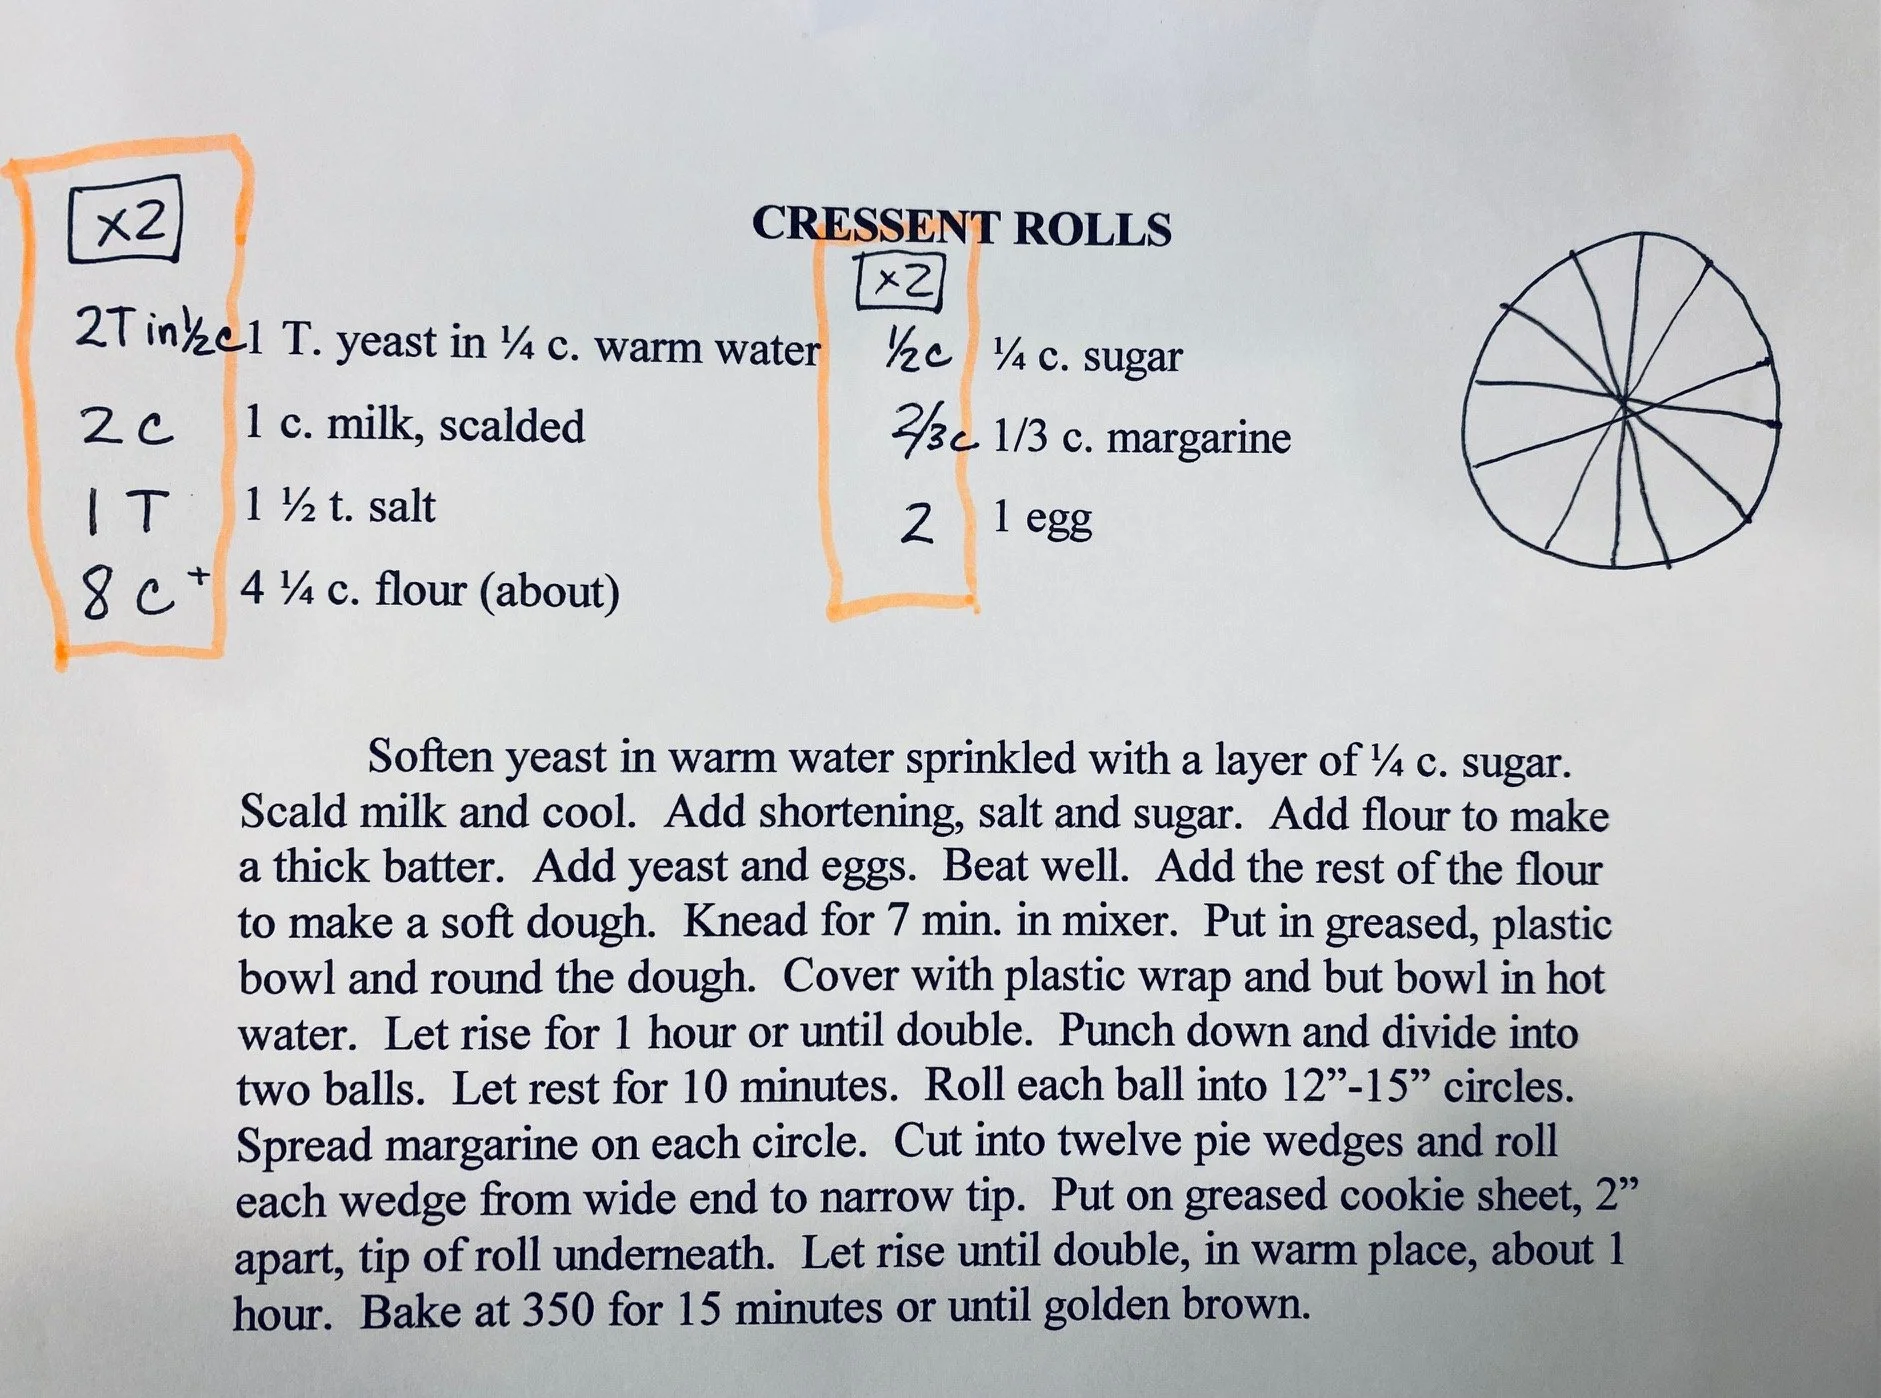 x2
CRESSENT ROLLS
x2
2T in ½ c 1 T. yeast in ¼ c. warm water ½ c ¼ c. sugar
2 c 1 c. milk, scalded 2/3 c 1/3 c. margarine
1 T 1 ½ t. salt 2 1 egg
8 c + 4 ¼ c. flour (about)
Soften yeast in warm water sprinkled with a layer of ¼ c. sugar.
Scald milk and cool. Add shortening, salt and sugar. Add flour to make
a thick batter. Add yeast and eggs. Beat well. Add the rest of the flour
to make a soft dough. Knead for 7 min. in mixer. Put in greased, plastic
bowl and round the dough. Cover with plastic wrap and but bowl in hot
water. Let rise for 1 hour or until double. Punch down and divide into
two balls. Let rest for 10 minutes. Roll each ball into 12”-15” circles.
Spread margarine on each circle. Cut into twelve pie wedges and roll
each wedge from wide end to narrow tip. Put on greased cookie sheet, 2”
apart, tip of roll underneath. Let rise until double, in warm place, about 1
hour. Bake at 350 for 15 minutes or until golden brown.